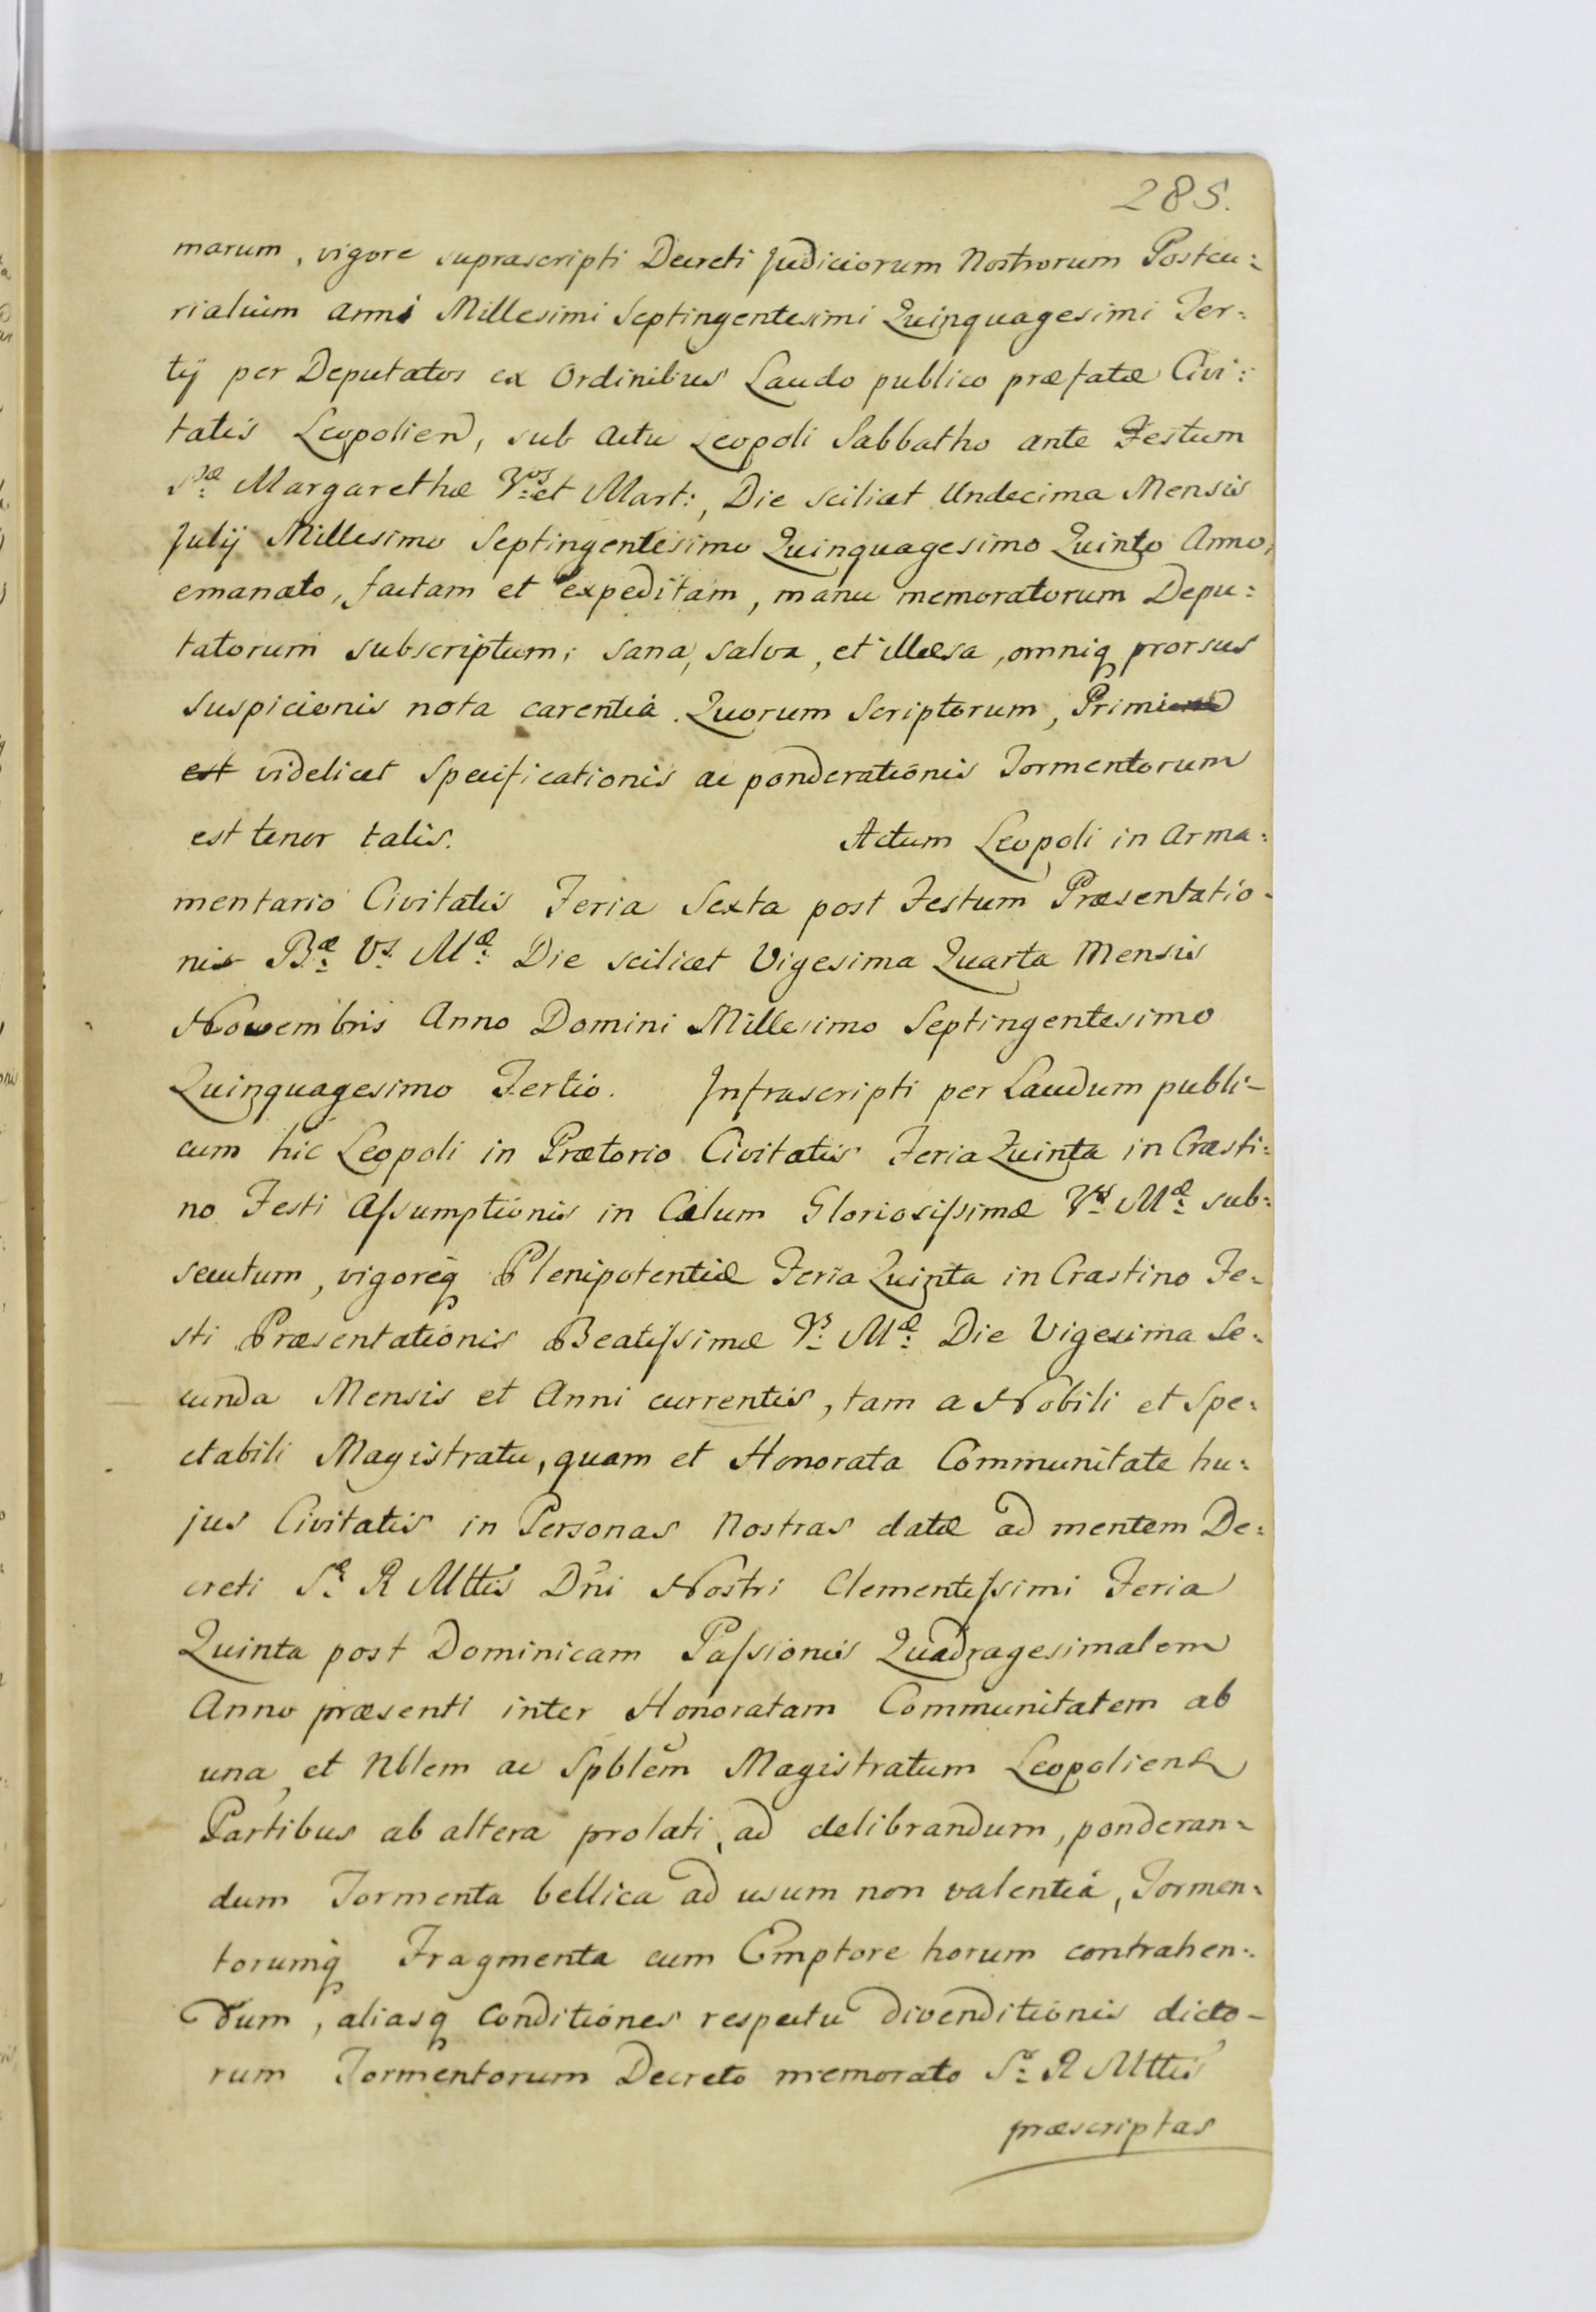 285.
marum, vigore suprascripti Decreti Judiciorum Nostrorum Postcu:
rialium anni Millesimi Septingentesimi Quinquagesimi Ter:
tij per Deputatos ex Ordinibus Laudo publico præfatæ Civi:
tatis Leopolien, sub Actu Leopoli Sabbatho ante Festum
Sæ: Margarethæ Vos: et Mart:, Die scilicet Undecima Mensis
Julij Millesimo Septingentesimo Quinquagesimo Quinto Anno,
emanato, factam et expeditam, manu memoratorum Depu:
tatorum subscriptum; sana, salva, et illæsa, omniq prorsus
suspicionis nota carentia. Quorum Scriptorum, Primi
est videlicet Specificationis ac ponderationis Tormentorum
est tenor talis. Actum Leopoli in Arma:
mentario Civitatis Feria Sexta post Festum Præsentatio-
nis Bæ: Vs: Mæ: Die scilicet Vigesima Quarta Mensis
Novembris Anno Domini Millesimo Septingentesimo
Quinquagesimo Tertio. Infrascripti per Laudum publi-
cum hic Leopoli in Prætorio Civitatis Feria Quinta in Crasti:
no Festi Assumptionis in Cælum Gloriosissimæ Vis: Mæ: sub:
secutum, vigoreq Plenipotentiæ Feria Quinta in Crastino Fe:
sti Præsentationis Beatissimæ Vs: Mæ: Die Vigesima Se:
cunda Mensis et Anni currentis, tam a Nobili et Spe:
ctabili Magistratu, quam et Honorata Communitate hu:
jus Civitatis in Personas Nostras datæ ad mentem De:
creti Sæ: R Mttis Dñi Nostri Clementissimi Feria
Quinta post Dominicam Passionis Quadragesimalem
Anno præsenti inter Honoratam Communitatem ab
una, et Nblem ac Spblem Magistratum Leopolien
Partibus ab altera prolati, ad delibrandum, ponderan:
dum Tormenta bellica ad usum non valentia, Tormen:
torumq Fragmenta cum Emptore horum contrahen:
dum, aliasq Conditiones respectu divenditionis dicto-
rum Tormentorum Decreto memorato Sæ: R Mttis
præscriptas